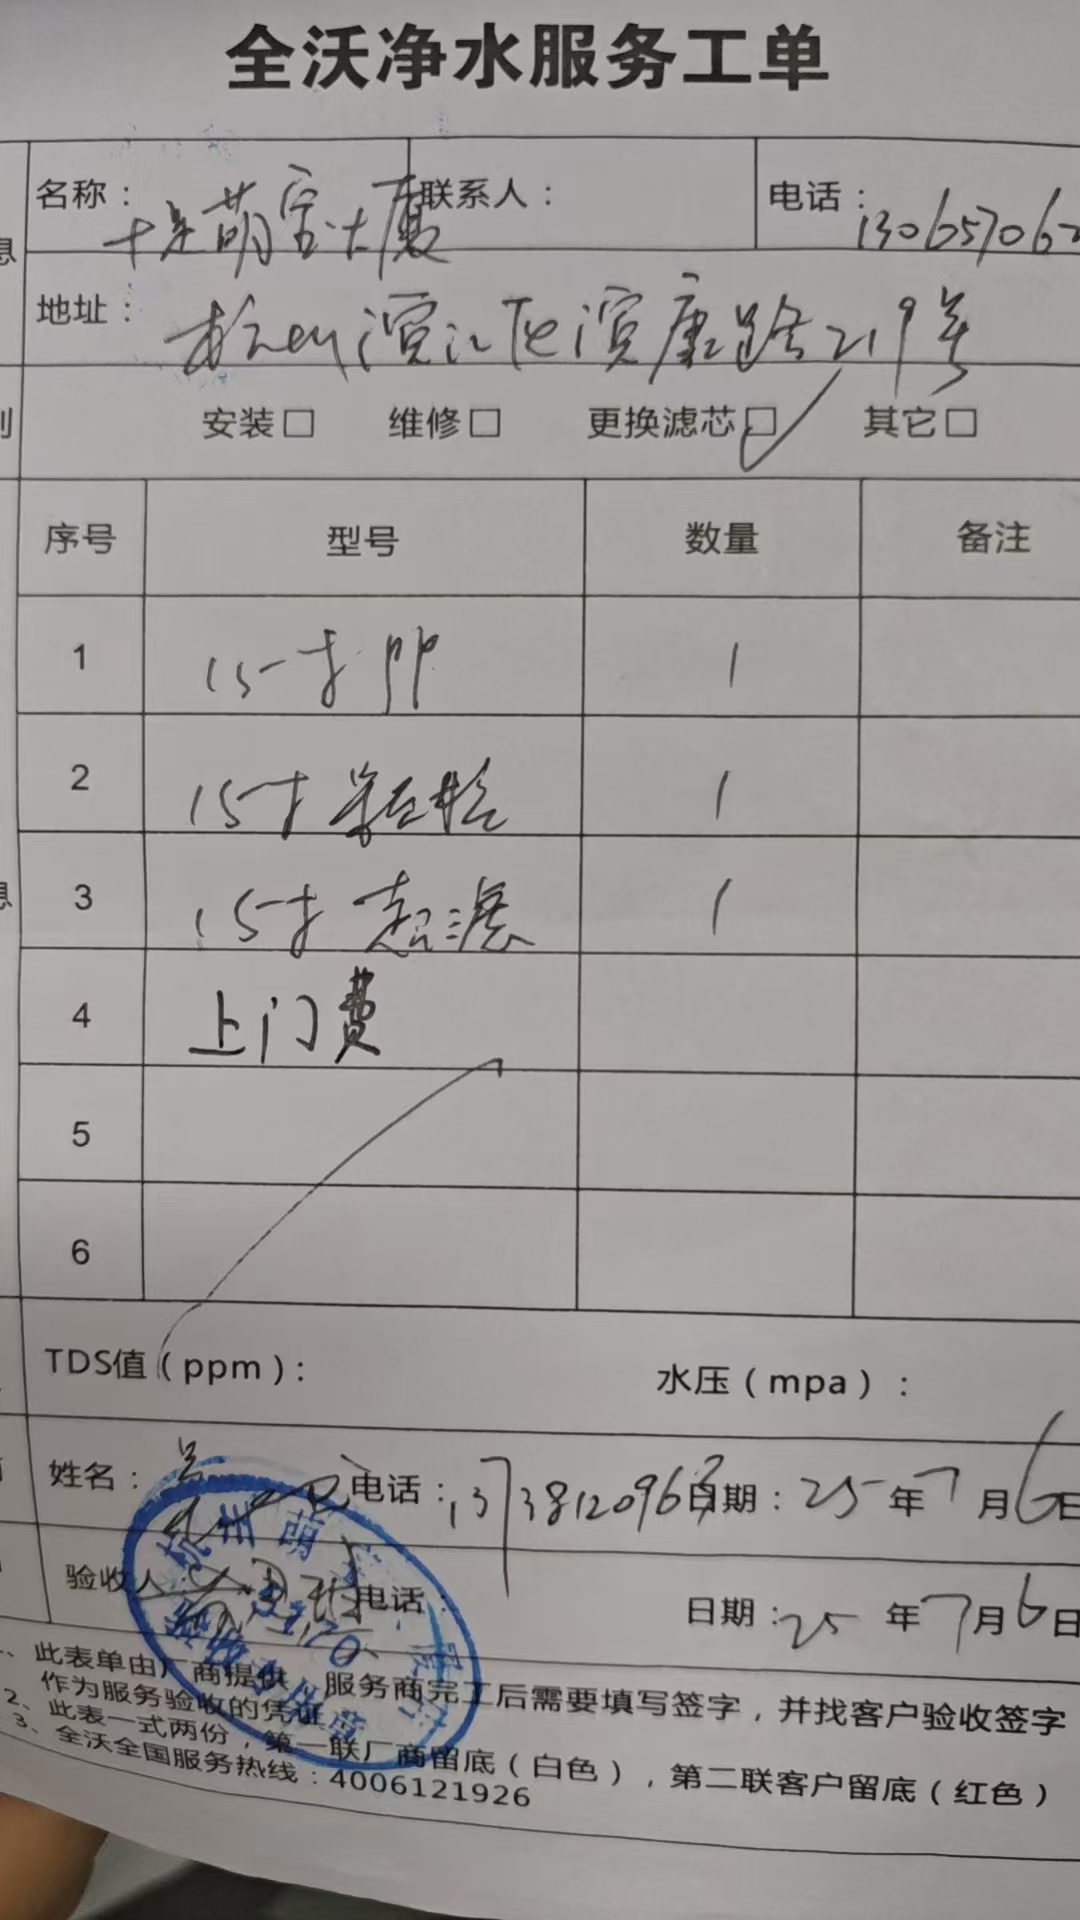 全沃净水服务工单
息 名称： 萌宝大厦 联系人： 电话：130657062
地址： 杭州滨江区滨康路219号
别 安装□ 维修□ 更换滤芯□✓ 其它□
序号 型号 数量 备注
1 15寸PP 1
2 15寸颗粒 1
息 3 15寸超滤 1
4 上门费
5
6
TDS值（ppm）： 水压（mpa）：
姓名： 电话：13738120963 日期：25年7月6日
验收人： 电话： 日期：25年7月6日
1、此表单由厂商提供，服务商完工后需要填写签字，并找客户验收签字
作为服务验收的凭证
2、此表一式两份，第一联厂商留底（白色），第二联客户留底（红色）
3、全沃全国服务热线：4006121926
杭州萌